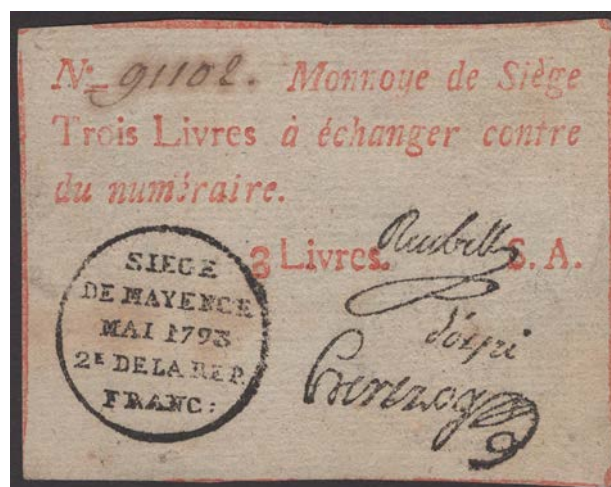 No 91102. Monnoye de Siège
Trois Livres à échanger contre
du numéraire.
3 Livres. S. A.
SIEGE
DE MAYENCE
MAI 1793
2E DE LA REP.
FRANC: